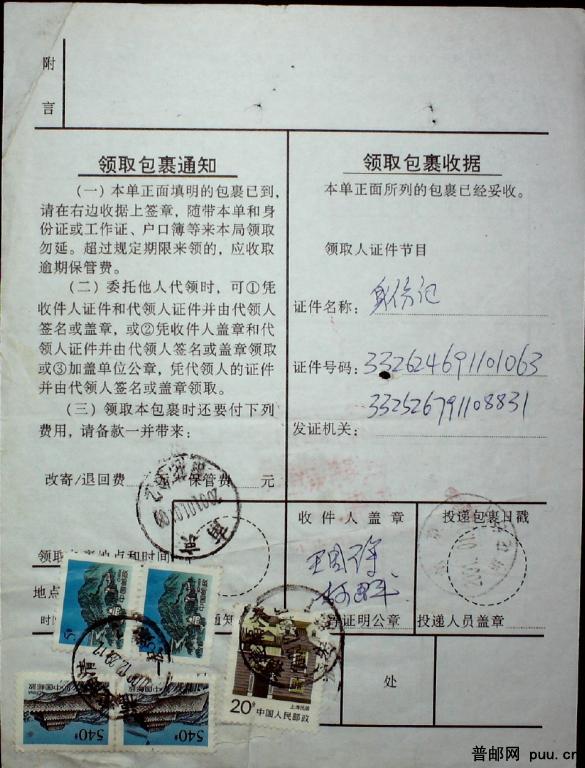 附
言
领取包裹通知
(一)本单正面填明的包裹已到,
请在右边收据上签章,随带本单和身
份证或工作证、户口簿等来本局领取
勿延。超过规定期限来领的,应收取
逾期保管费。
(二)委托他人代领时,可①凭
收件人证件和代领人证件并由代领人
签名或盖章,或②凭收件人盖章和代
领人证件并由代领人签名或盖章领取
或③加盖单位公章,凭代领人的证件
并由代领人签名或盖章领取。
(三)领取本包裹时还要付下列
费用,请备款一并带来:
改寄/退回费 保管费 元
领取 地点和时间
地点
时 通知
领取包裹收据
本单正面所列的包裹已经妥收。
领取人证件节目
证件名称: 身份证
证件号码: 332624691101063
332526791108831
发证机关:
收件人盖章
投递包裹日戳
证明公章
投递人员盖章
处
南京
540
中国邮政
540
中国邮政
20分
上海民居
中国人民邮政
普邮网 puu.cn